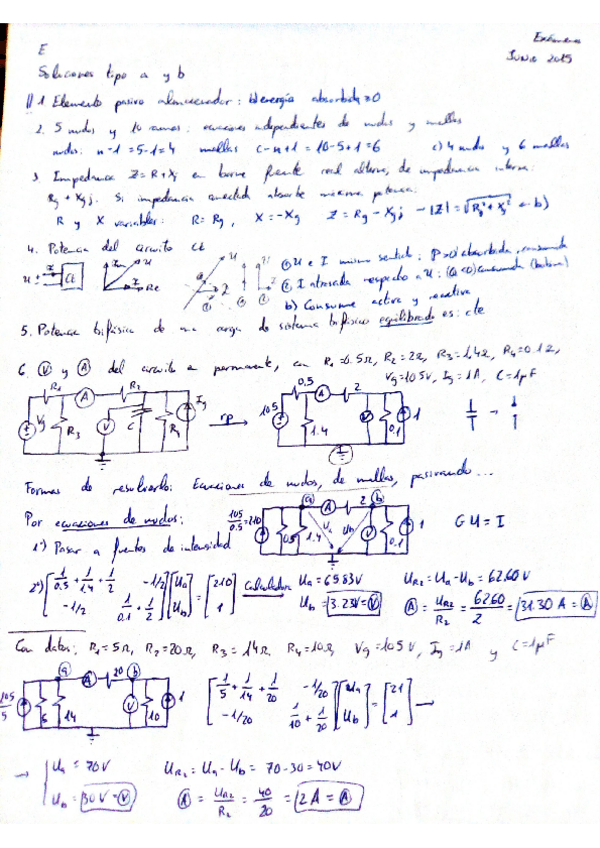 Exámenes
JUNIO 2015
E
Soluciones tipo a y b
1 Elemento pasivo almacenador: energía absorbida ≥0
2. 5 nudos y 10 ramas: ecuaciones independientes de nudos y mallas
nudos: n-1=5-1=4 mallas c-n+1=10-5+1=6 c) 4 nudos y 6 mallas
3. Impedancia Z=R+Xj en borne fuente real alterna, de impedancia interna:
Rg+Xgj. Si impedancia conectada absorbe máxima potencia:
R y X variables: R=Rg, X=-Xg Z=Rg-Xgj → |Z|=√Rg²+Xg² b)
4. Potencia del circuito
① U e I mismo sentido: P>0 absorbida, consumida
② I atrasada respecto a U: (Q>0) consumida
b) Consume activa y reactiva
5. Potencia trifásica de una carga de sistema trifásico equilibrado es: cte
6. Ⓥ y Ⓐ del circuito permanente, con R1=0.5Ω, R2=2Ω, R3=1,4Ω, R4=0.1Ω,
Vg=105V, Ig=1A, C=1μF
R1 A R2 Ig
Vg R3 V C R4
rp
0,5 A 2
105 1.4 V 0.1 1
Formas de resolverlo: Ecuaciones de nudos, de mallas, pasivando...
Por ecuaciones de nudos:
105/0.5=210 0.5 1.4 a A 2 b Ua Ub 0.1 1
GU=I
1º) Pasar a fuentes de intensidad
2º) [1/0.5+1/1.4+1/2 -1/2; -1/2 1/0.1+1/2] [Ua; Ub] = [210; 1] Calculadora → Ua=69.83V UR2=Ua-Ub=62.60V
Ub=3.23V=Ⓥ Ⓐ=UR2/R2=62.60/2=31.30A=Ⓐ
Con datos: R1=5Ω, R2=20Ω, R3=14Ω R4=10Ω Vg=105V, Ig=1A y C=1μF
105/5 5 14 a A 20 b V 10 1
[1/5+1/14+1/20 -1/20; -1/20 1/10+1/20] [Ua; Ub] = [21; 1] →
→ Ua=70V UR2=Ua-Ub=70-30=40V
Ub=30V=Ⓥ Ⓐ=UR2/R2=40/20=2A=Ⓐ